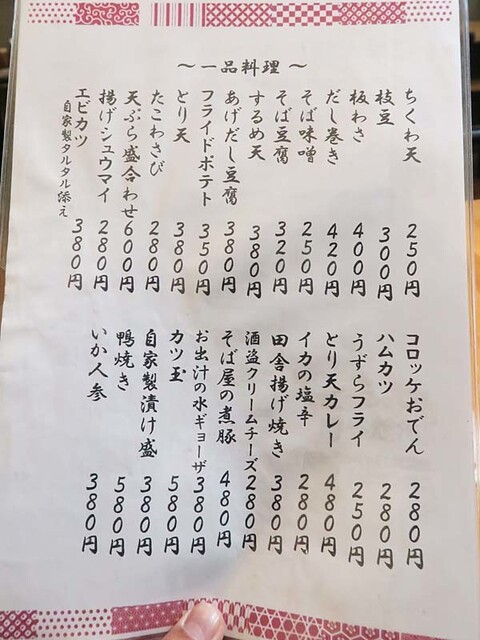 ～一品料理～
ちくわ天 250円
枝豆 300円
板わさ 400円
だし巻き 420円
そば味噌 250円
そば豆腐 320円
するめ天 380円
あげだし豆腐 380円
フライドポテト 350円
とり天 380円
たこわさび 280円
天ぷら盛合わせ 600円
揚げシュウマイ 280円
エビカツ 380円
自家製タルタル添え
コロッケおでん 280円
ハムカツ 280円
うずらフライ 250円
とり天カレー 480円
イカの塩辛 280円
田舎揚げ焼き 380円
酒盗クリームチーズ 280円
そば屋の煮豚 480円
お出汁の水ギョーザ 380円
カツ玉 580円
自家製漬け盛 380円
鴨焼き 580円
いか人参 380円